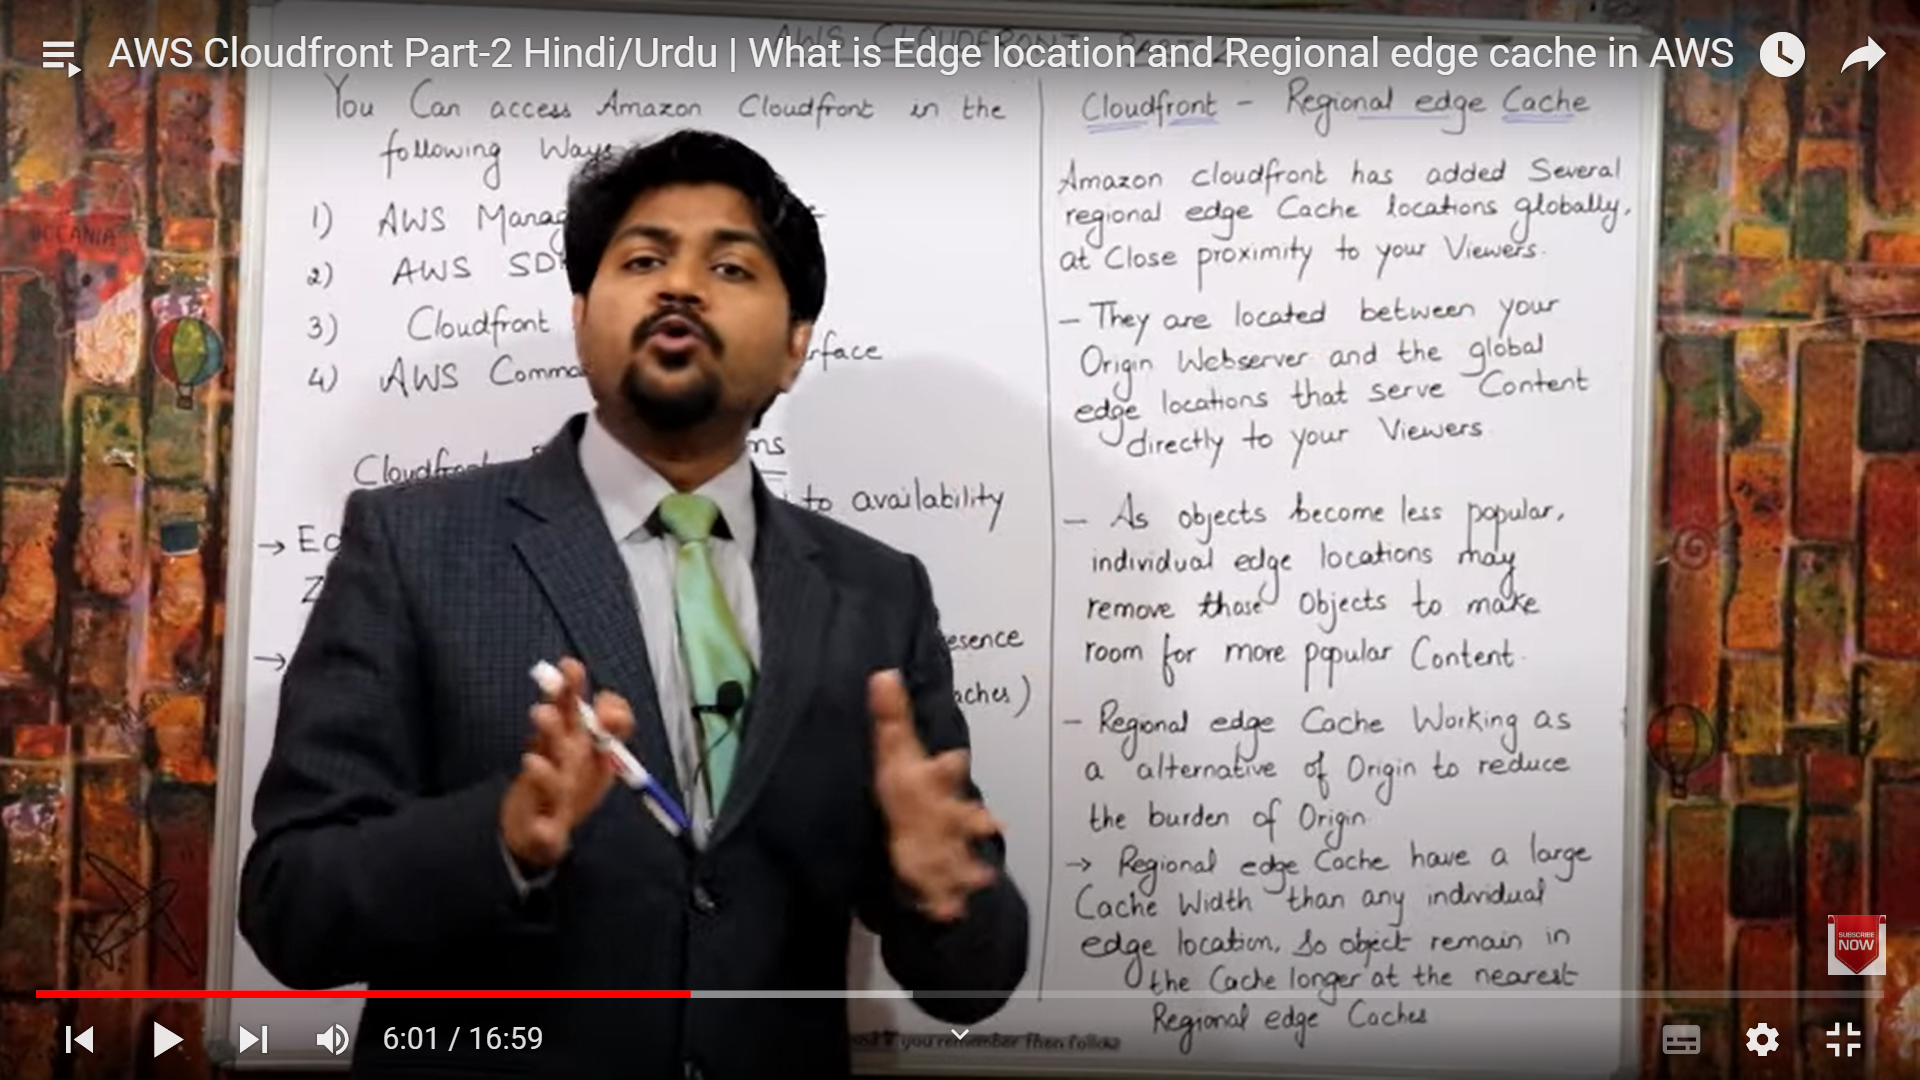 AWS Cloudfront Part-2 Hindi/Urdu | What is Edge location and Regional edge cache in AWS
You Can access Amazon Cloudfront in the
following Ways
1) AWS
2) AWS
3) Cloudfront
4) AWS
to availability
Cloudfront - Regional edge Cache
Amazon cloudfront has added Several
regional edge Cache locations globally,
at Close proximity to your Viewers.
- They are located between your
Origin Webserver and the global
edge locations that serve Content
directly to your Viewers
- As objects become less popular,
individual edge locations may
remove those Objects to make
room for more popular Content.
- Regional edge Cache Working as
a alternative of Origin to reduce
the burden of Origin
→ Regional edge Cache have a large
Cache Width than any individual
edge location, So object remain in
the Cache longer at the nearest
Regional edge Caches
OCEANIA
SUBSCRIBE
NOW
6:01 / 16:59